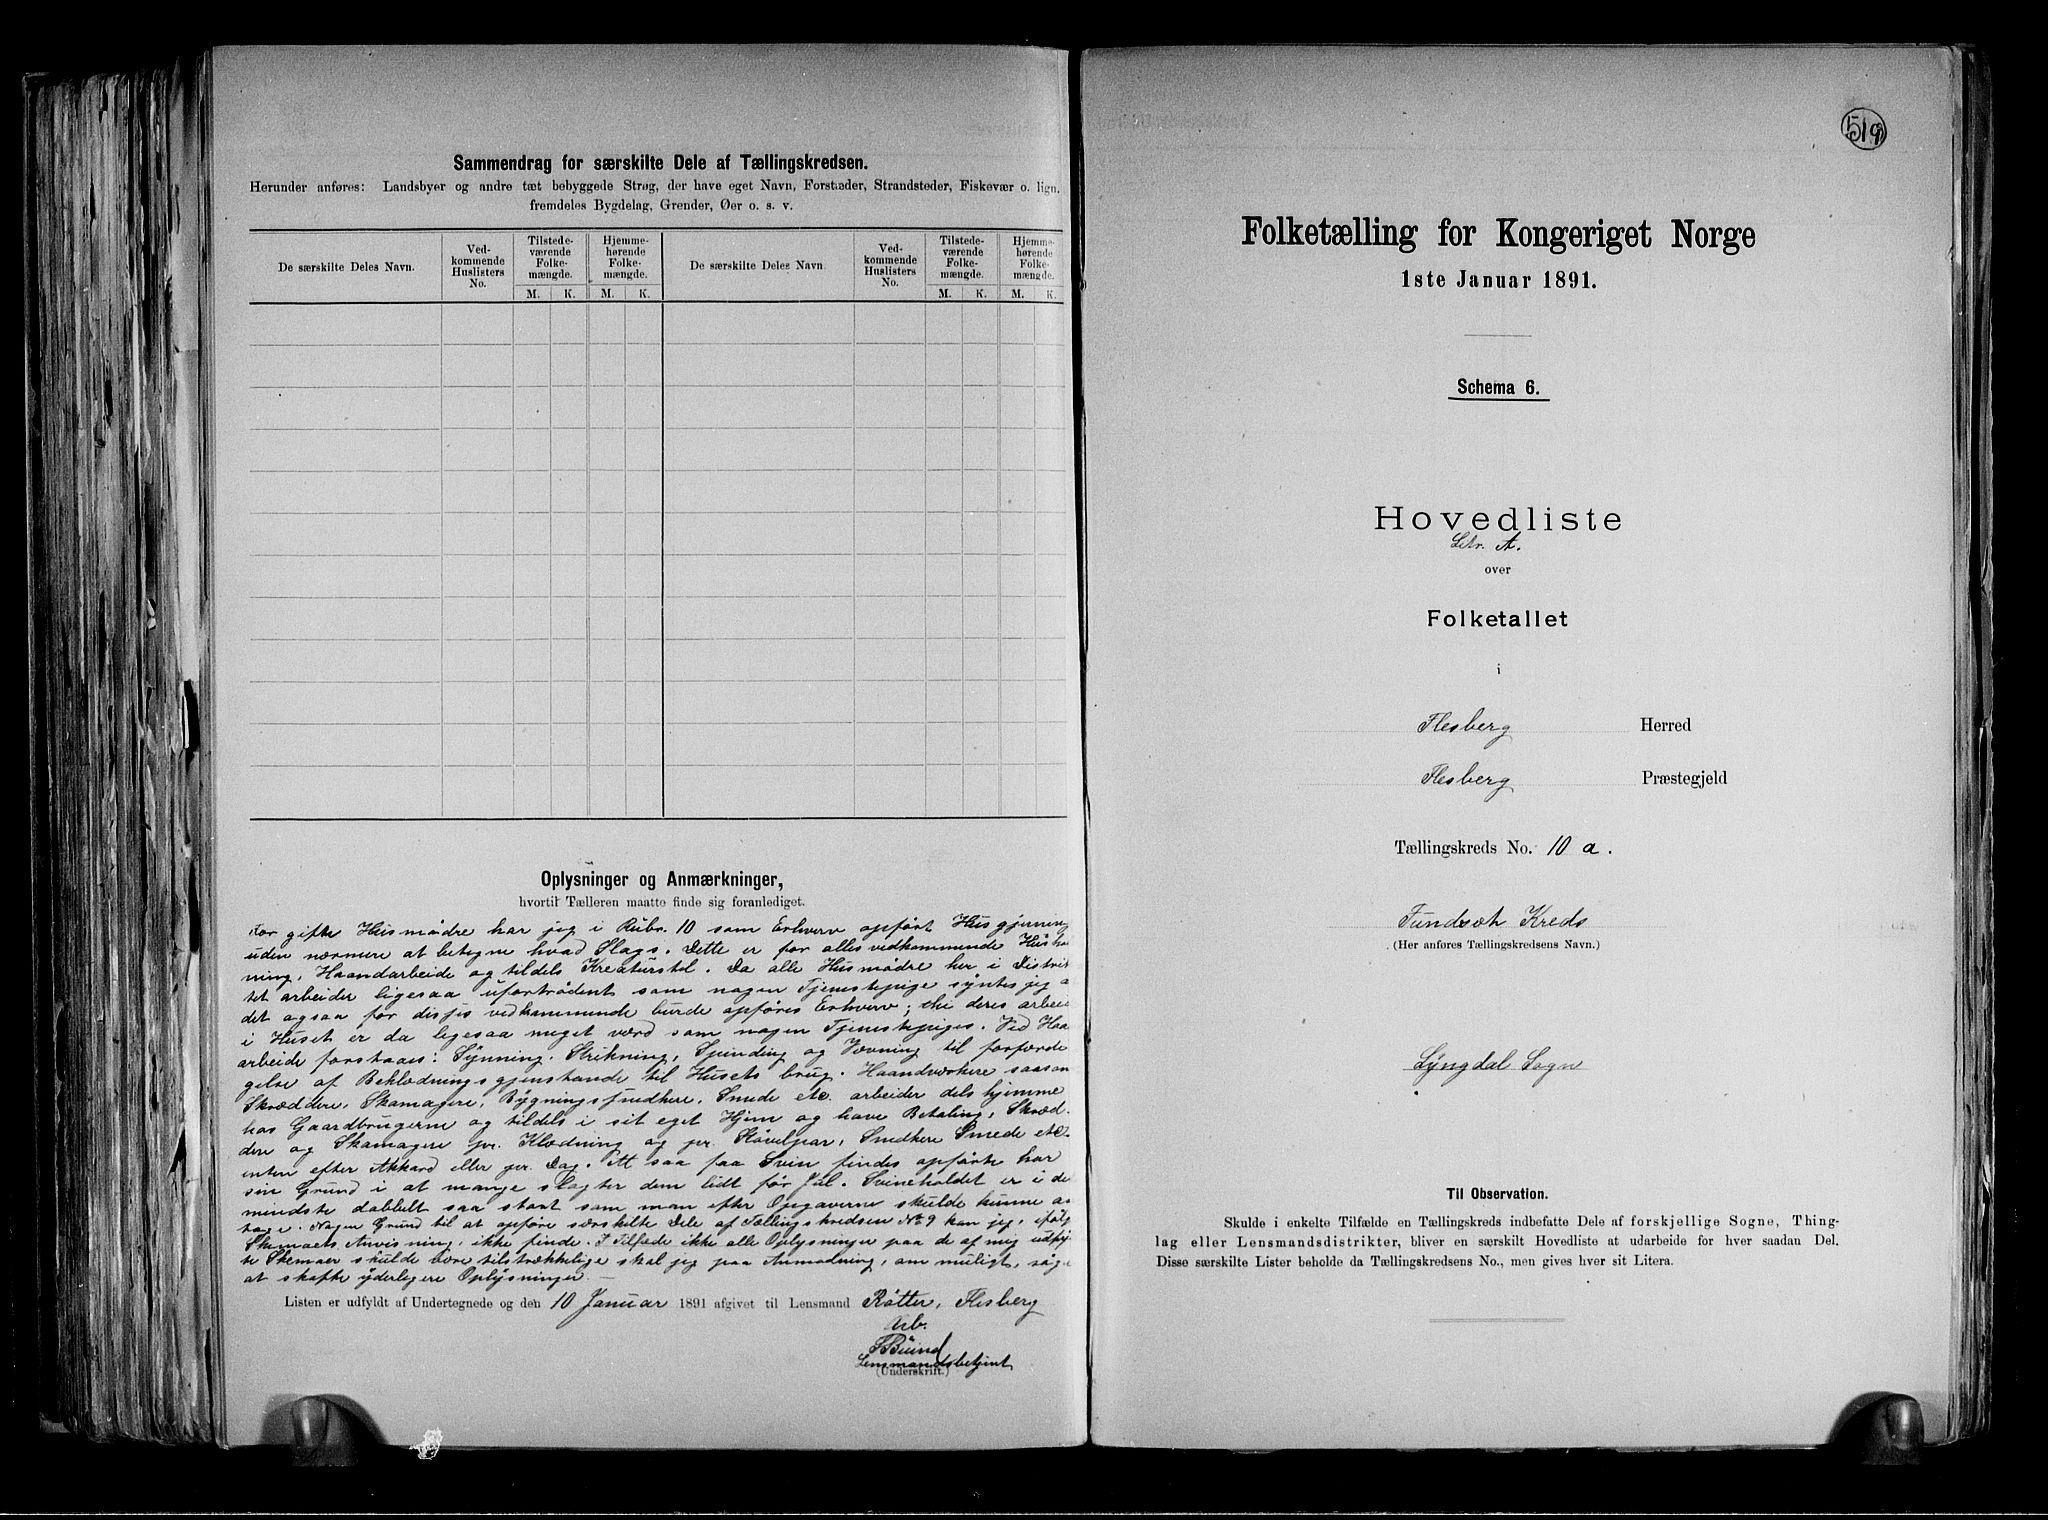 Sammendrag for særskilte Dele af Tællingskredsen.
Herunder anføres: Landsbyer og andre tæt bebyggede Strøg, der have eget Navn, Forstæder, Strandsteder, Fiskevær o. lign.
fremdeles Bygdelag, Grender, Øer o. s. v.
De særskilte Deles Navn.
Ved-
kommende
Huslisters
No.
Tilstede-
værende
Folke-
mængde.
Hjemme-
hørende
Folke-
mængde.
De særskilte Deles Navn.
Ved-
kommende
Huslisters
No.
Tilstede-
værende
Folke-
mængde.
Hjemme-
hørende
Folke-
mængde.
M. K. M. K. M. K. M. K.
Oplysninger og Anmærkninger,
hvortil Tælleren maatte finde sig foranlediget.
For gifte Husmødre har jeg i Rubr. 10 som Erhverv opført Husgjerning
uden nærmere at betegne hvad Slags. Dette er for alles vedkommende Hushold
ning, Haandarbeide og tildels Kreaturstel. Da alle Husmødre her i Distrik
tet arbeider ligesaa ufortrødent som nogen Tjenestepige syntes jeg a
det ogsaa for disses vedkommende burde opføres Erhverv; thi deres arbei
i Huset er da ligesaa meget værd som nogen Tjenestepiges. Ved Haa
arbeide forstaaes: Syning, Strikning, Spinding og Vævning til forfærdi
gelse af Beklædningsgjenstande til Husets brug. Haandværkere saasom
Skræddere, Skomagere, Bygningssnedkere, Smede etc. arbeider dels hjemme
hos Gaardbrugerne og tildels i sit eget Hjem og have Betaling, Skræd-
dere og Skomagere pr. Klædning og pr. Støvelpar, Snedkere Smede etc.
enten efter Akkord eller pr. Dag. At saa faa Svin findes opførte har
sin Grund i at mange slagter dem lidt før Jul. Svineholdet er i de
mindste dobbelt saa stort som man efter Opgaverne skulde kunne an
tage. Nogen Grund til at opføre særskilte Dele af Tællingskredsen No 9 kan jeg, ifølg
Skemaets Anvisning, ikke finde. I Tilfæde ikke alle Oplysninger paa de af mig udfyl
te Skemaer skulde være tilstrækkelige skal jeg paa Anmodning, om muligt, søge
at skaffe yderligere Oplysninger. —
Listen er udfyldt af Undertegnede og den 10 Januar 1891 afgivet til Lensmand Røtter, Flesberg
Ærb.
Lensmandsbetjent
(Underskrift.)
519
Folketælling for Kongeriget Norge
1ste Januar 1891.
Schema 6.
Hovedliste
Litr. A.
over
Folketallet
i
Flesberg Herred
Flesberg Præstegjeld
Tællingskreds No. 10 a.
Fundsæth Kreds
(Her anføres Tællingskredsens Navn.)
Lyngdal Sogn
Til Observation.
Skulde i enkelte Tilfælde en Tællingskreds indbefatte Dele af forskjellige Sogne, Thing-
lag eller Lensmandsdistrikter, bliver en særskilt Hovedliste at udarbeide for hver saadan Del.
Disse særskilte Lister beholde da Tællingskredsens No., men gives hver sit Litera.